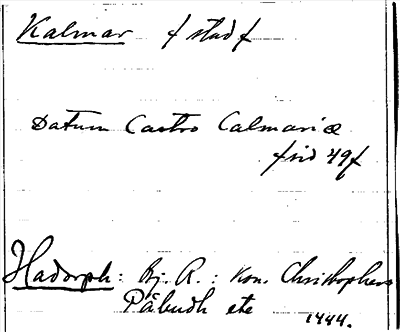 Kalmar /stad/
Datum Castro Calmariæ
/sid 49/
Hadorph: Bj. R.: Kon. Christophers
Påbudh etc
1444.